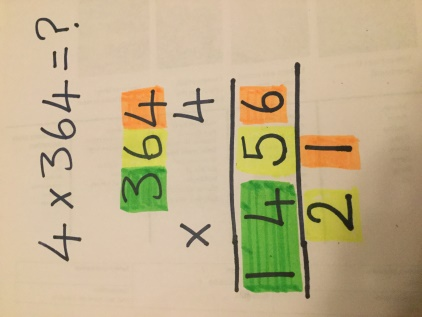 4 x 364 = ?
364
x 4
1456
21